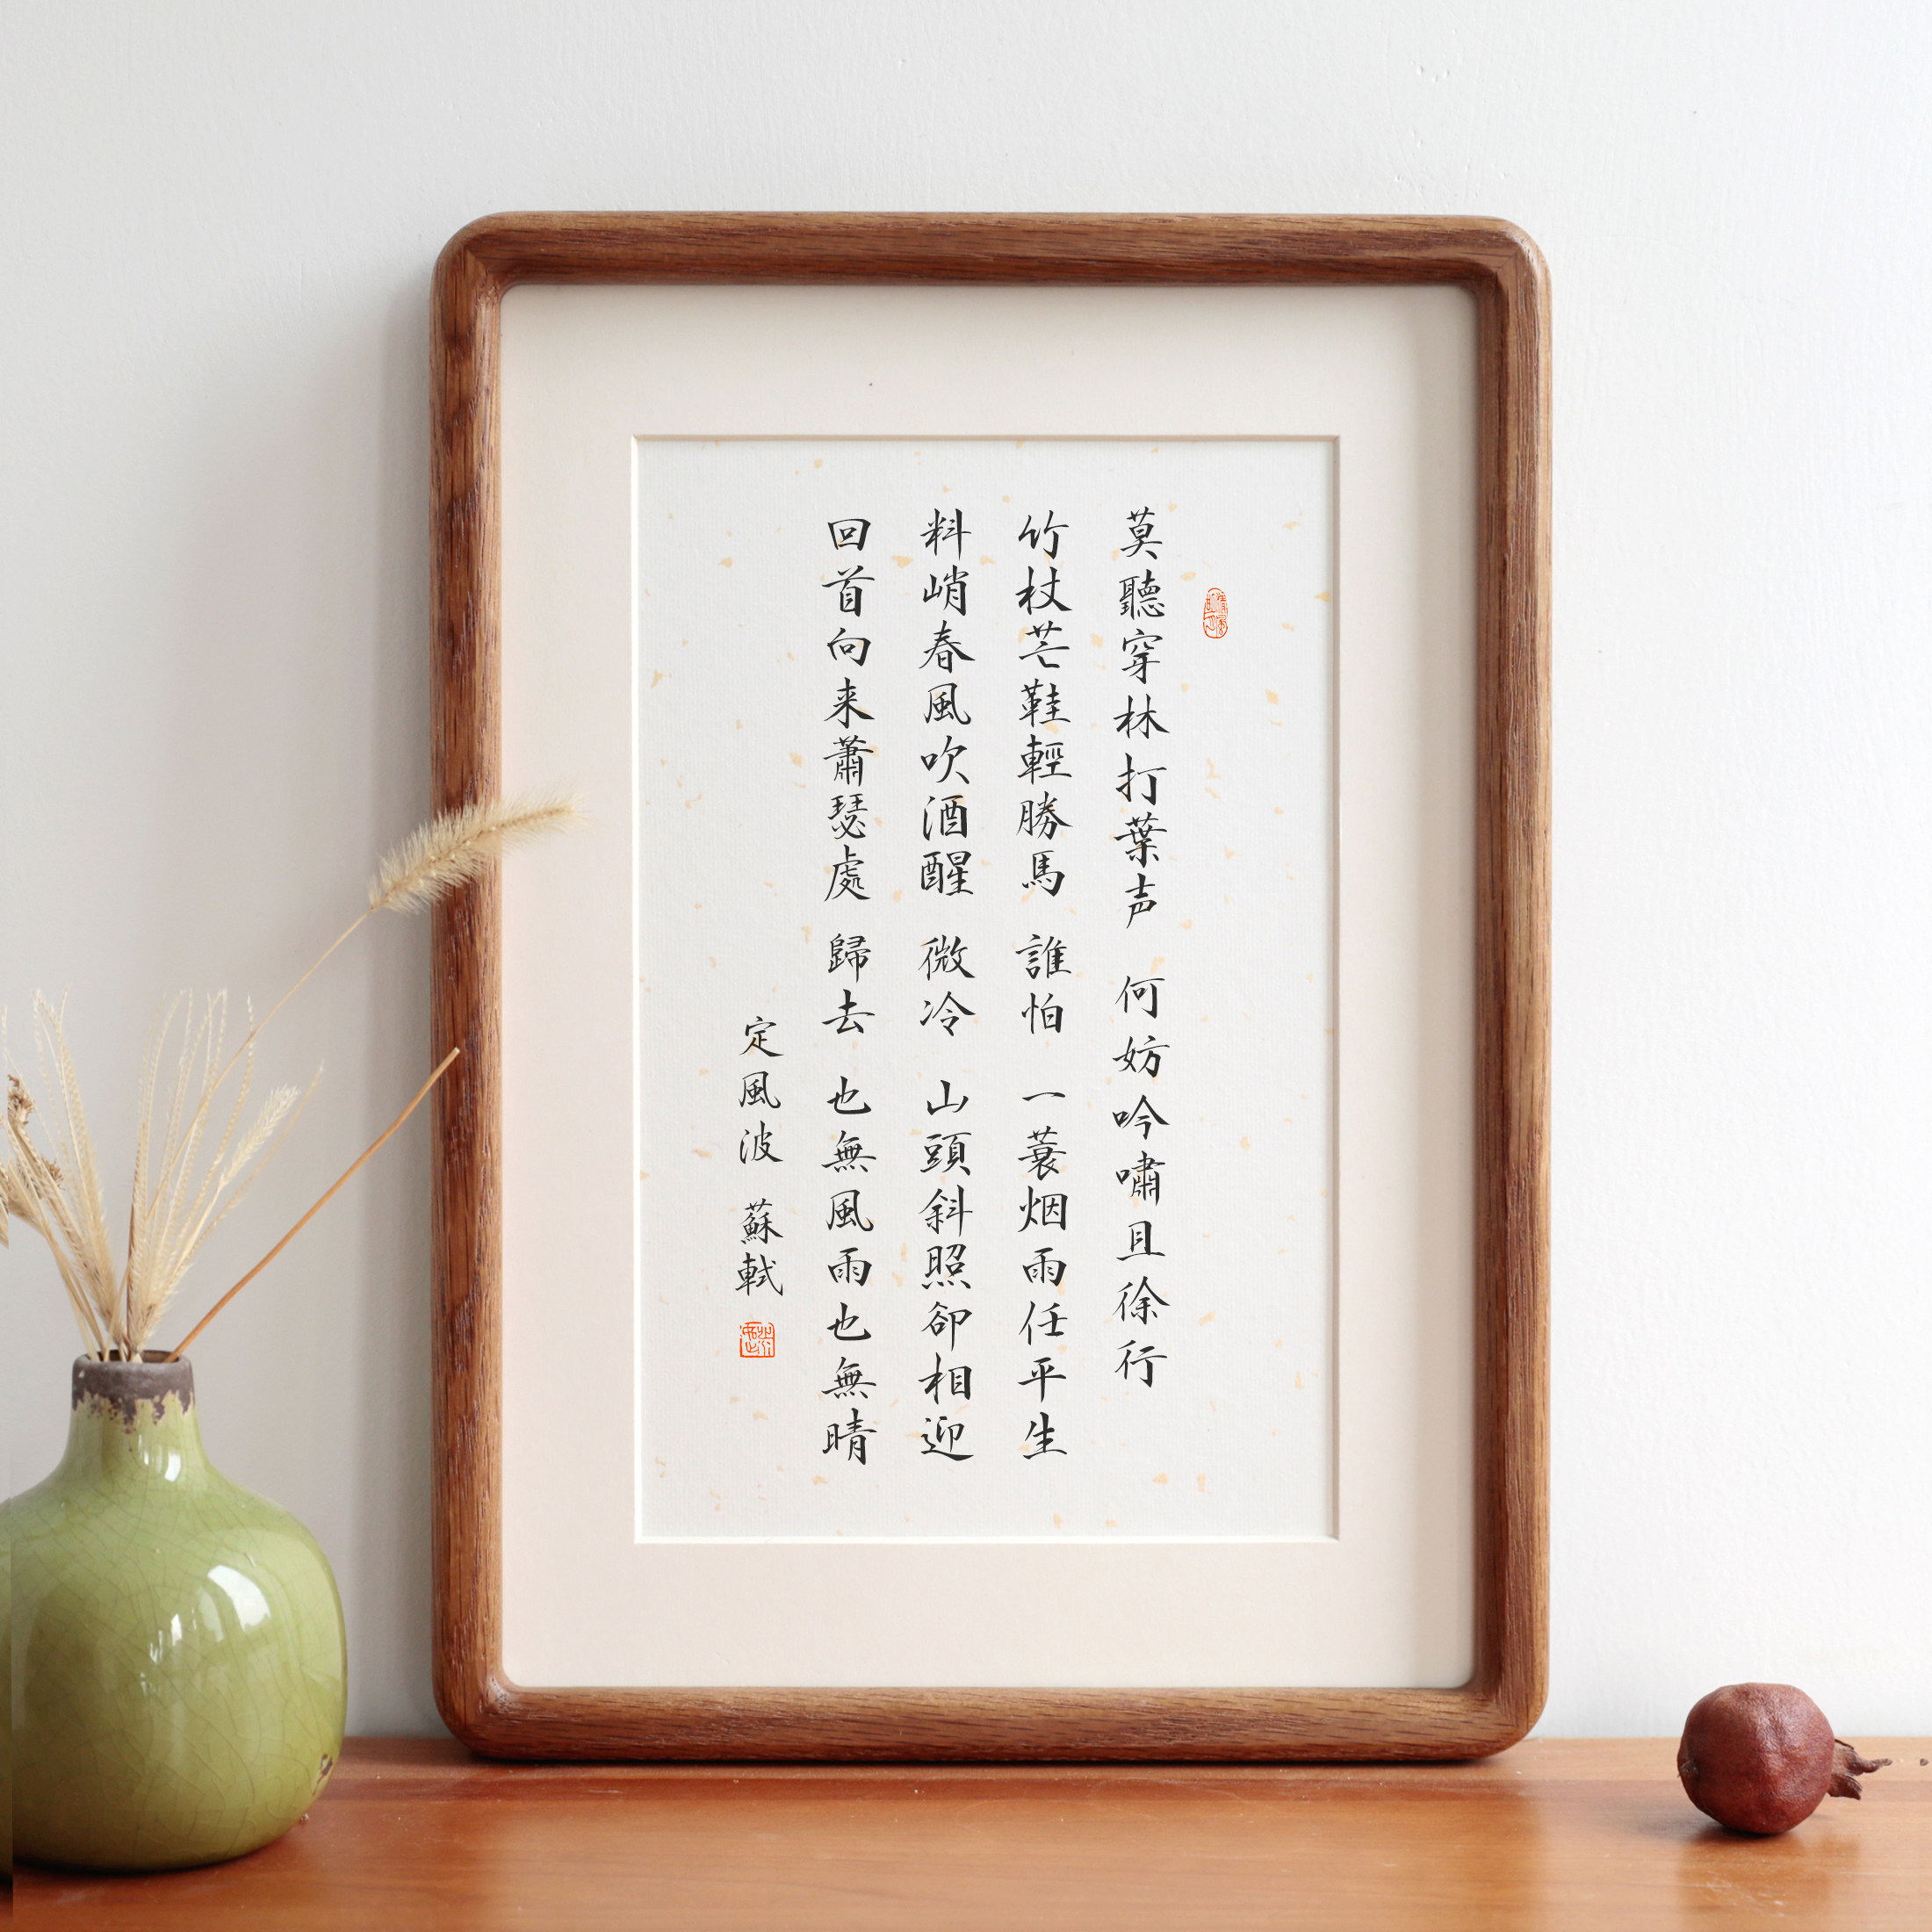 莫聽穿林打葉声 何妨吟嘯且徐行
竹杖芒鞋輕勝馬 誰怕 一蓑烟雨任平生
料峭春風吹酒醒 微冷 山頭斜照卻相迎
回首向来蕭瑟處 歸去 也無風雨也無晴
定風波 蘇軾